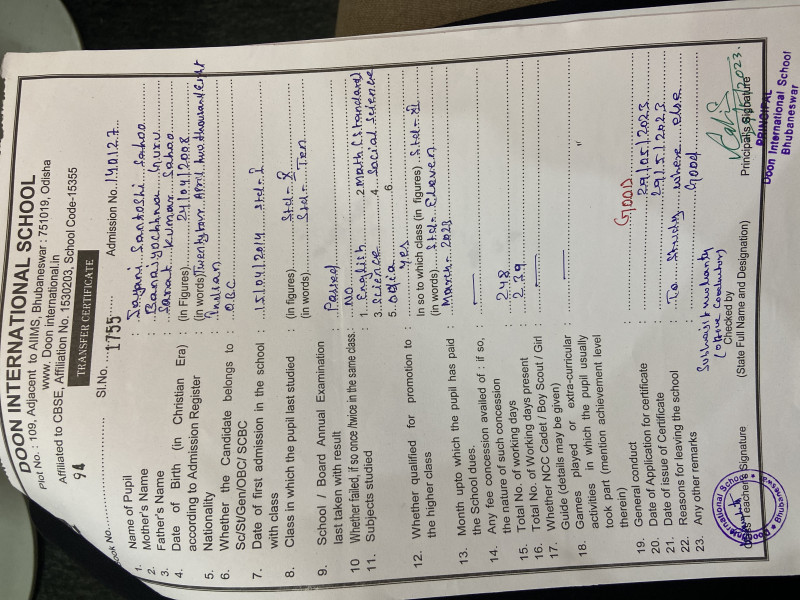 DOON INTERNATIONAL SCHOOL
Plot No. : 109, Adjacent to AIIMS, Bhubaneswar : 751019, Odisha
www. Doon international.in
Affiliated to CBSE, Affiliation No. 1530203, School Code-15355
TRANSFER CERTIFICATE
Book No. 94 Sl.No. 1755 Admission No. 140127
1. Name of Pupil : Jayani Santoshi Sahoo
2. Mother's Name : Banajyochhna Guru
3. Father's Name : Sarat Kumar Sahoo
4. Date of Birth (in Christian Era) : (in Figures) 24/04/2008
according to Admission Register (in words) Twentyfour April two thousand eight
5. Nationality : Indian
6. Whether the Candidate belongs to : OBC
Sc/St/Gen/OBC/ SCBC
7. Date of first admission in the school : 15/04/2014 Std-I
with class
8. Class in which the pupil last studied : (in figures) Std-X
(in words) Std- Ten
9. School / Board Annual Examination : Passed
last taken with result
10 Whether failed, if so once /twice in the same class : No
11. Subjects studied : 1. English 2. Math (Standard)
3. Science 4. Social Science
5. Odia 6.
12. Whether qualified for promotion to : Yes
the higher class In so to which class (in figures) Std-XI
(in words) Std- Eleven
13. Month upto which the pupil has paid : March- 2023
the School dues.
14. Any fee concession availed of : if so, :
the nature of such concession
15. Total No. of working days : 248
16. Total No. of Working days present : 239
17. Whether NCC Cadet / Boy Scout / Girl :
Guide (details may be given)
18. Games played or extra-curricular :
activities in which the pupil usually
took part (mention achievement level
therein)
19. General conduct : GOOD
20. Date of Application for certificate
21. Date of issue of Certificate : 29/5/2023
22. Reasons for leaving the school : To Study where else
23. Any other remarks : Good
(office Coordinator)
Class Teacher's Signature
Checked by
(State Full Name and Designation)
Principal's Signature
PRINCIPAL
Doon International School
Bhubaneswar